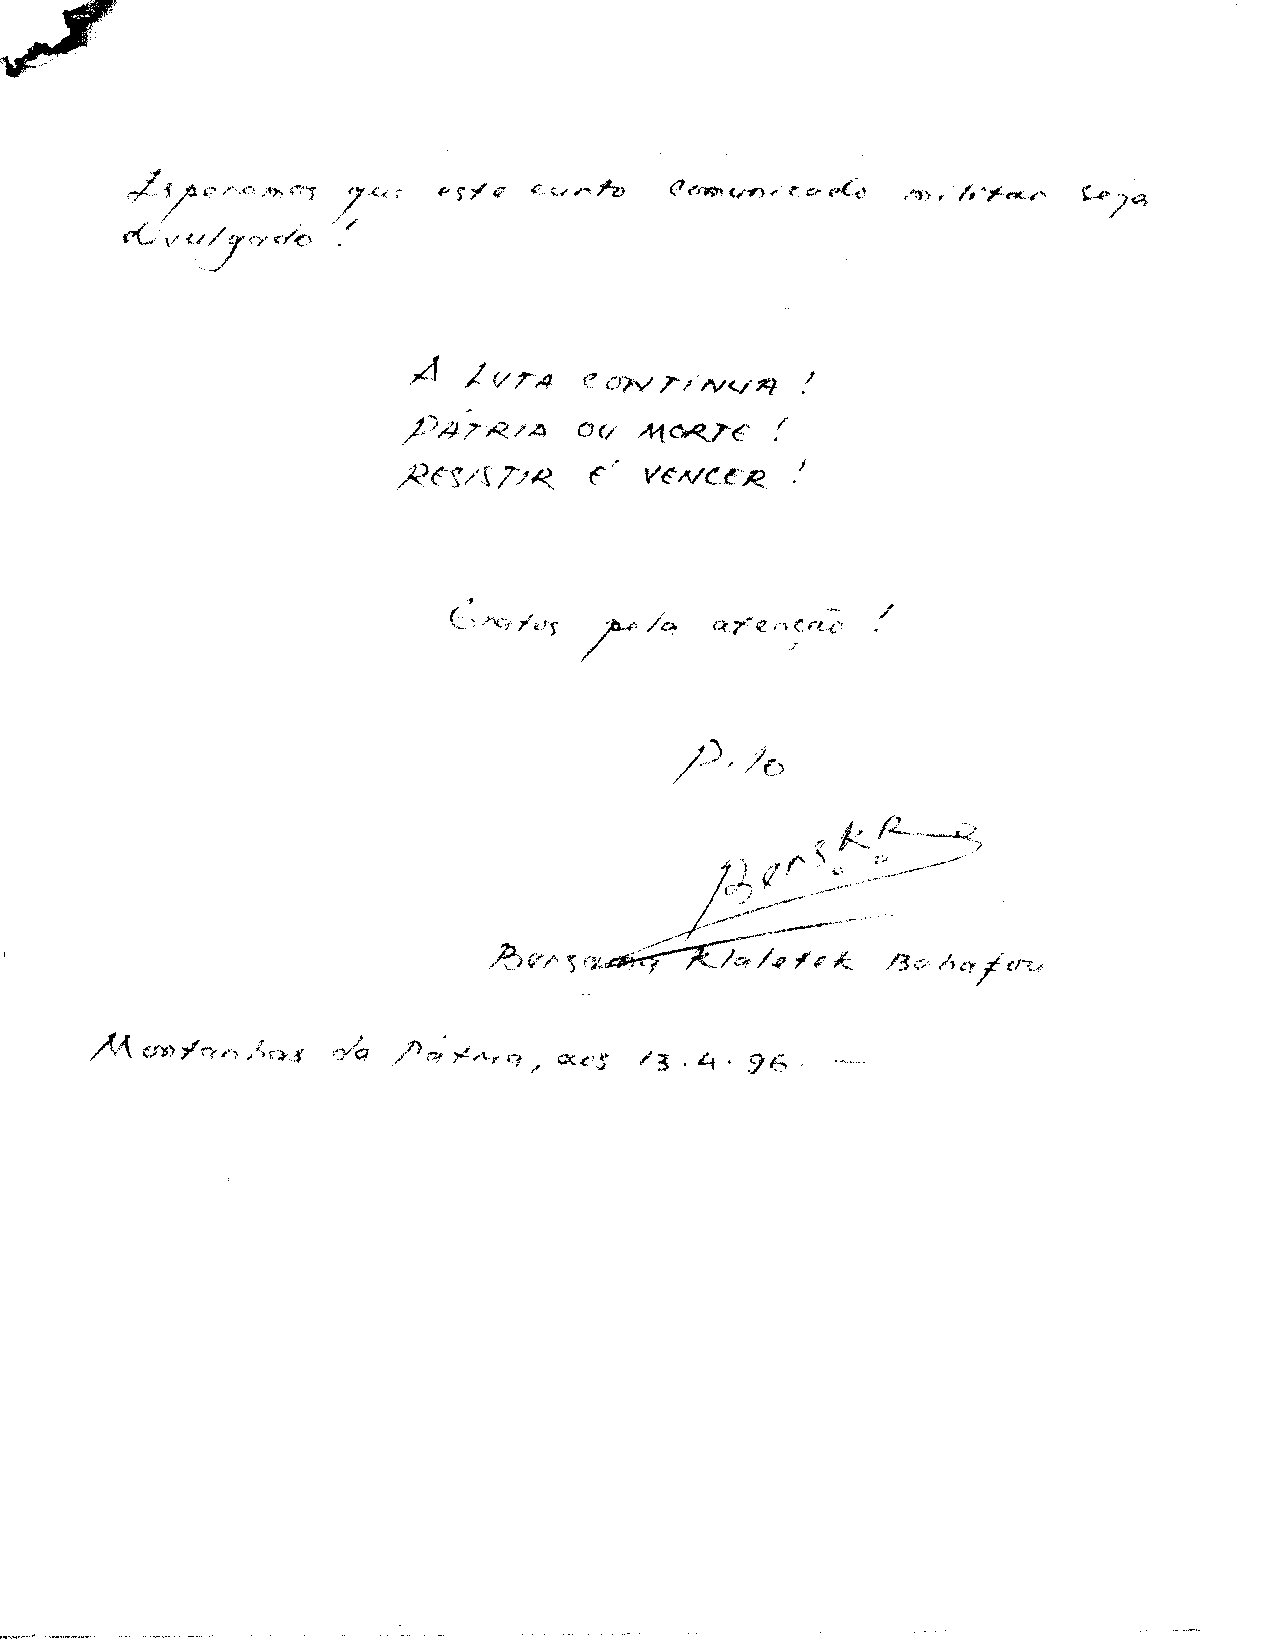 Esperamos que este curto comunicado militar seja
divulgado!
A LUTA CONTINUA!
PÁTRIA OU MORTE!
RESISTIR É VENCER!
Gratos pela atenção!
P. lo
Klaletek
Montanhas da Pátria, aos 13.4.96. —